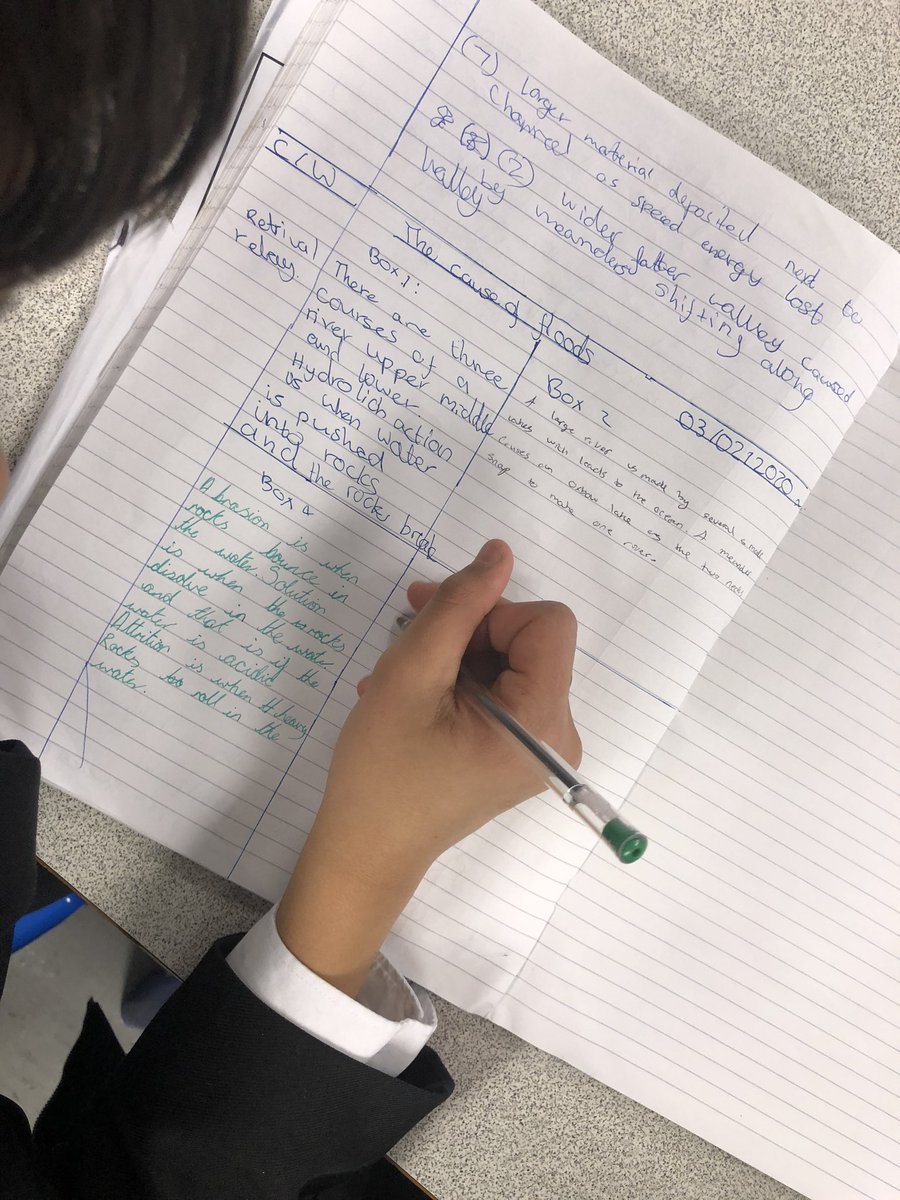 (7) larger material deposited next to
channel as speed energy lost
(2) wider flatter valley caused
by meanders shifting along
valley
C/W
The cause of floods
03/02/2020
Retrival
relay.
Box 1:
There are three
courses of a
river upper middle
and lower.
Hydrolich action
is when water
is pushed
into rocks
and the rocks break
Box 2
A large river is made by several small
ones with leads to the ocean. A meander
causes an oxbow lake as the two necks
snap to make one river.
Box 4
Abrasion is when
rocks bounce in
the water. Solution
is when the rocks
disolve in the water
and that is if the
water is acidic
Attrition is when heavy
Rocks roll in the
water.